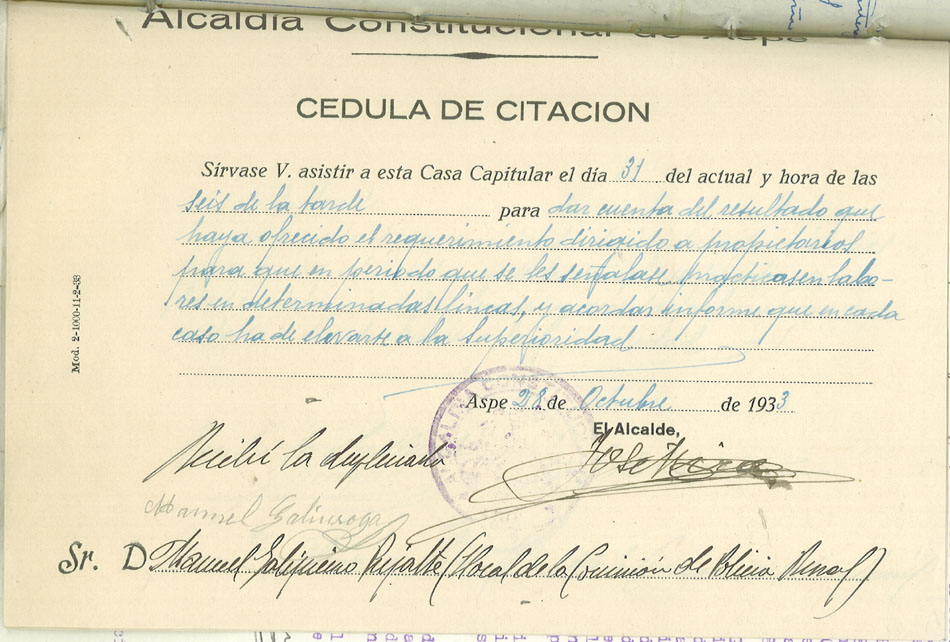 Alcaldía Constitucional de Aspe
CEDULA DE CITACION
Sírvase V. asistir a esta Casa Capitular el día 31 del actual y hora de las
seis de la tarde para dar cuenta del resultado que
haya ofrecido el requerimiento dirigido a propietarios
para que en periodo que se les señalase, practicasen labo-
res en determinadas fincas, y acordar informe que en cada
caso ha de elevarse a la Superioridad
Mod. 2-1000-11-2-33
Aspe 28 de Octubre de 1933
El Alcalde,
Recibí la duplicada
Manuel
Sr. D Manuel (Vocal de la Comisión de Policia Rural)